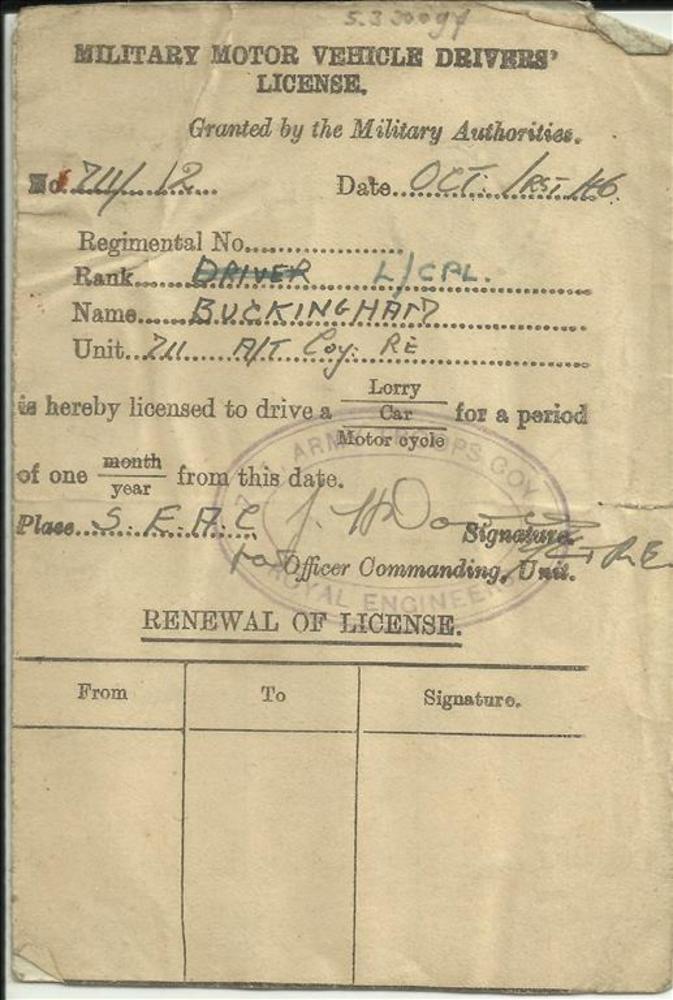 MILITARY MOTOR VEHICLE DRIVERS'
LICENSE.
Granted by the Military Authorities.
No. 711/12 Date OCT. 1RST 46.
Regimental No.
Rank DRIVER L/CPL.
Name BUCKINGHAM
Unit 711 A/T Coy: RE
is hereby licensed to drive a Lorry
Car for a period
Motor cycle
of one month
year from this date.
Place S.E.A.C Signature
for Officer Commanding, Unit.
ARMY TROOPS COY
ROYAL ENGINEERS
RENEWAL OF LICENSE.
From To Signature.